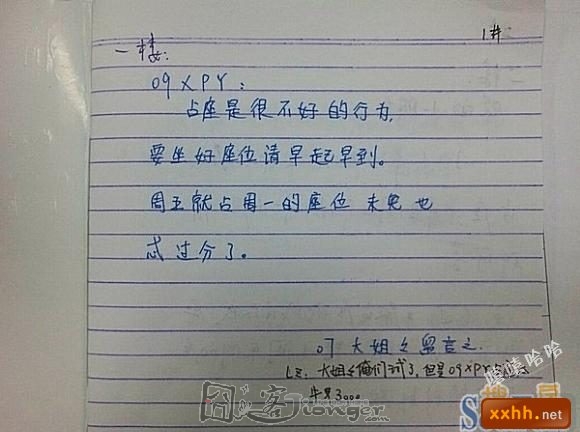 1#
一楼:
09XPY:
占座是很不好的行为,
要坐好座位请早起早到。
周五就占周一的座位 未免也
忒过分了。
07 大姐之留言之.
嘻嘻哈哈
L三: 大姐之俺们
但是09XPY
囧客 Jionger.com
xxhh.net